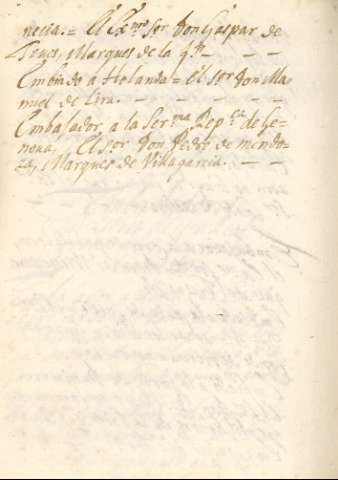 necia.= El Exmo Sor Don Gaspar de
Teues, Marques de la fn - - -
Embiado a Holanda = El sor Don Ma
nuel de Lira. - - - - - -
Embajador a la Serma Repca de Ge-
noua, El sor Don Pedro de mendo-
za, Marques de Villagarcia. - -